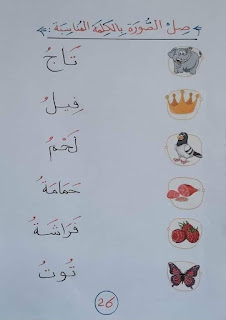 صِلْ الصُّورَةَ بِالكَلِمَةِ المُنَاسِبَةِ :
تَاجُ
فِيلُ
لَحْمُ
حَمَامَةُ
فَرَاشَةُ
تُوتُ
26